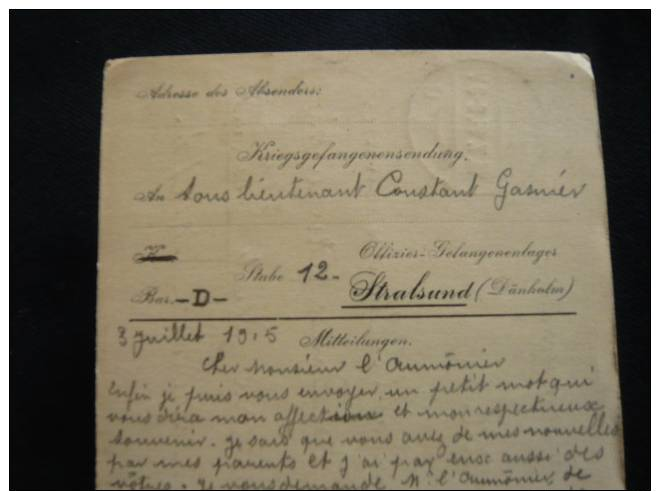 Adresse des Absenders:
Kriegsgefangenensendung.
An Sous lieutenant Constant Gasnier
Stube 12- Offizier-Gefangenenlager
Bar. -D- Stralsund (Dänholm)
3 juillet 1915 Mitteilungen.
Cher Monsieur l'Aumônier
Enfin je puis vous envoyer un petit mot qui
vous dira mon affection et mon respectueux
souvenir. Je sais que vous avez de mes nouvelles
par mes parents et j'ai par eux aussi des
vôtres. Je vous demande M. l'Aumônier de